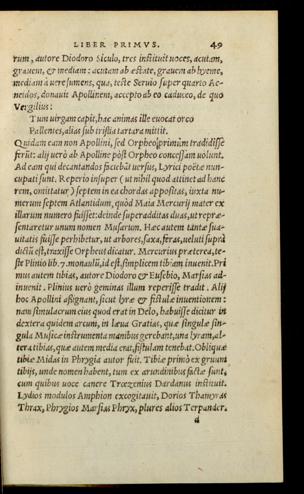 LIBER PRIMVS. 49
rum, autore Diodoro Siculo, tres instituit uoces, acutam,
grauem, & mediam: acutam ab æstate, grauem ab hyeme,
mediam à uere sumens, qua, teste Seruio super quarto Ae-
neidos, donauit Apollinem, accepto ab eo caduceo, de quo
Vergilius:
Tum uirgam capit, hac animas ille euocat orco
Pallentes, alias sub tristia tartara mittit.
Quidam eam non Apollini, sed Orpheo primùm tradidisse
ferũt: alij uerò ab Apolline pòst Orpheo concessam uolunt.
Ad eam qui decantandos faciebãt uersus, Lyrici poëtæ nun-
cupati sunt. Reperio insuper (ut nihil quod attinet ad hanc
rem, omittatur) septem in ea chordas appositas, iuxta nu-
merum septem Atlantidum, quòd Maia Mercurij mater ex
illarum numero fuisset: deinde superadditas duas, ut repræ-
sentaretur unum nomen Musarum. Hæc autem tantæ sua-
uitatis fuisse perhibetur, ut arbores, saxa, feras, ueluti suprà
dictũ est, traxisse Orpheus dicatur. Mercurius præterea, te-
ste Plinio lib. 7. monaulũ, id est, simplicem tibiam inuenit. Pri
mus autem tibias, autore Diodoro & Eusebio, Marsias ad-
inuenit. Plinius uerò geminas illum reperisse tradit. Alij
hoc Apollini assignant, sicut lyræ & fistulæ inuentionem:
nam simulacrum eius quod erat in Delo, habuisse dicitur in
dextera quidem arcum, in læua Gratias, quæ singulæ sin-
gula Musicæ instrumenta manibus gerebant, una lyram, al-
tera tibias, quæ autem media erat, fistulam tenebat. Obliquã
tibiã Midas in Phrygia autor fuit. Tibiæ primò ex gruum
tibijs, unde nomen habent, tum ex arundinibus factæ sunt,
cum quibus uoce canere Trœzenius Dardanus instituit.
Lydios modulos Amphion excogitauit, Dorios Thamyras
Thrax, Phrygios Marsias Phryx, plures alios Terpander.
d